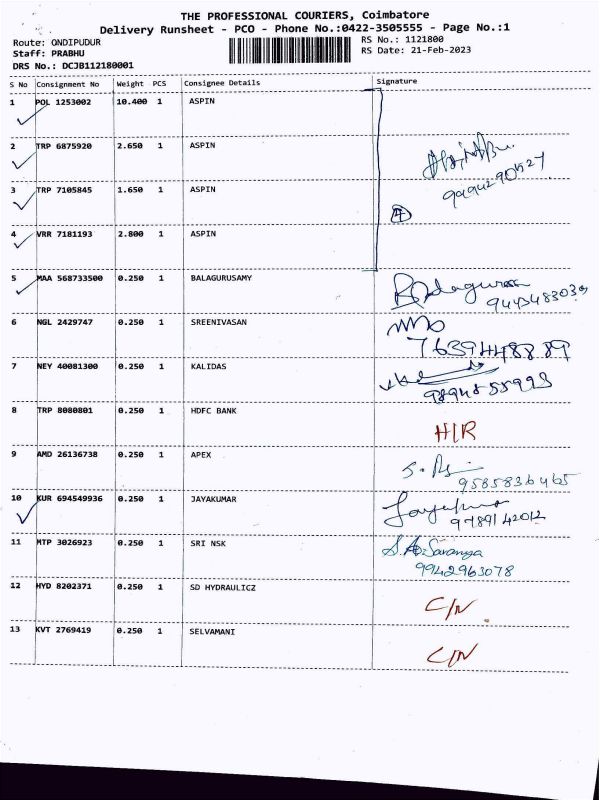 THE PROFESSIONAL COURIERS, Coimbatore
Delivery Runsheet - PCO - Phone No.:0422-3505555 - Page No.:1
Route: ONDIPUDUR RS No.: 1121800
Staff: PRABHU RS Date: 21-Feb-2023
DRS No.: DCJB112180001
S No Consignment No Weight PCS Consignee Details Signature
1 POL 1253002 10.400 1 ASPIN
2 TRP 6875920 2.650 1 ASPIN
9994290527
3 TRP 7105845 1.650 1 ASPIN
4
4 VRR 7181193 2.800 1 ASPIN
5 MAA 568733500 0.250 1 BALAGURUSAMY
6 NGL 2429747 0.250 1 SREENIVASAN
7639448889
7 NEY 40081300 0.250 1 KALIDAS
8 TRP 8080801 0.250 1 HDFC BANK
H/R
9 AMD 26136738 0.250 1 APEX
9585836465
10 KUR 694549936 0.250 1 JAYAKUMAR
9789142012
11 MTP 3026923 0.250 1 SRI NSK
9942963078
12 HYD 8202371 0.250 1 SD HYDRAULICZ
C/N
13 KVT 2769419 0.250 1 SELVAMANI
C/N